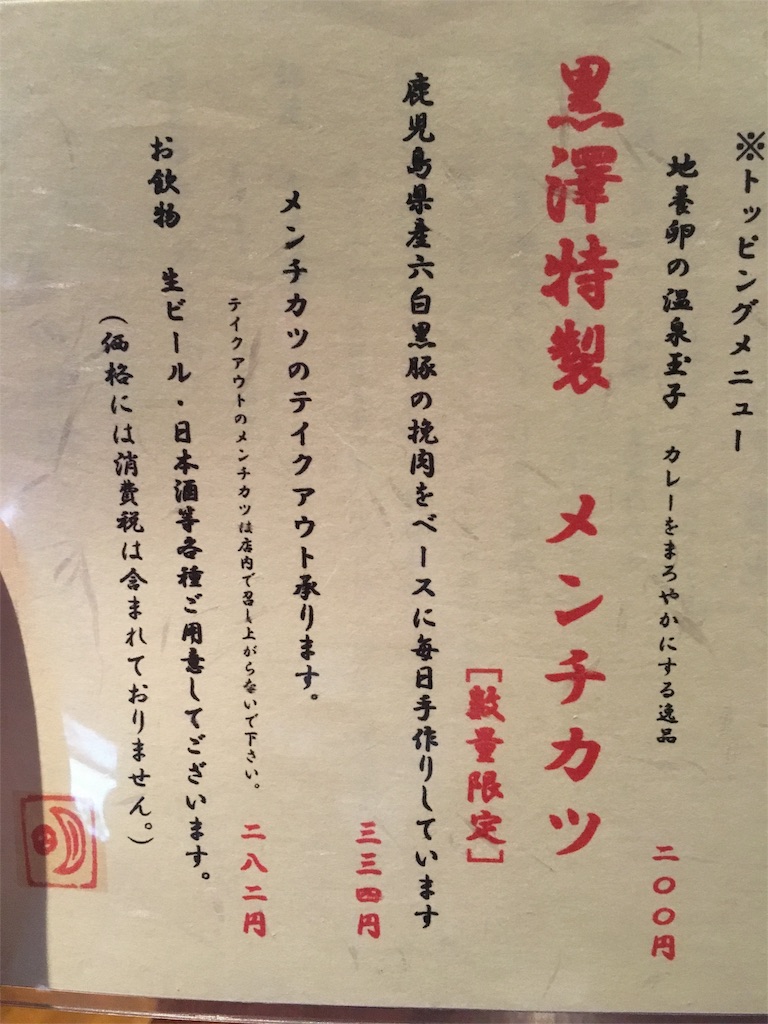 ※トッピングメニュー
地養卵の温泉玉子 カレーをまろやかにする逸品 二〇〇円
黒澤特製 メンチカツ
［数量限定］
鹿児島県産六白黒豚の挽肉をベースに毎日手作りしています
三三四円
メンチカツのテイクアウト承ります。
テイクアウトのメンチカツは店内で召し上がらないで下さい。 二八二円
お飲物 生ビール・日本酒等各種ご用意してございます。
（価格には消費税は含まれておりません。）